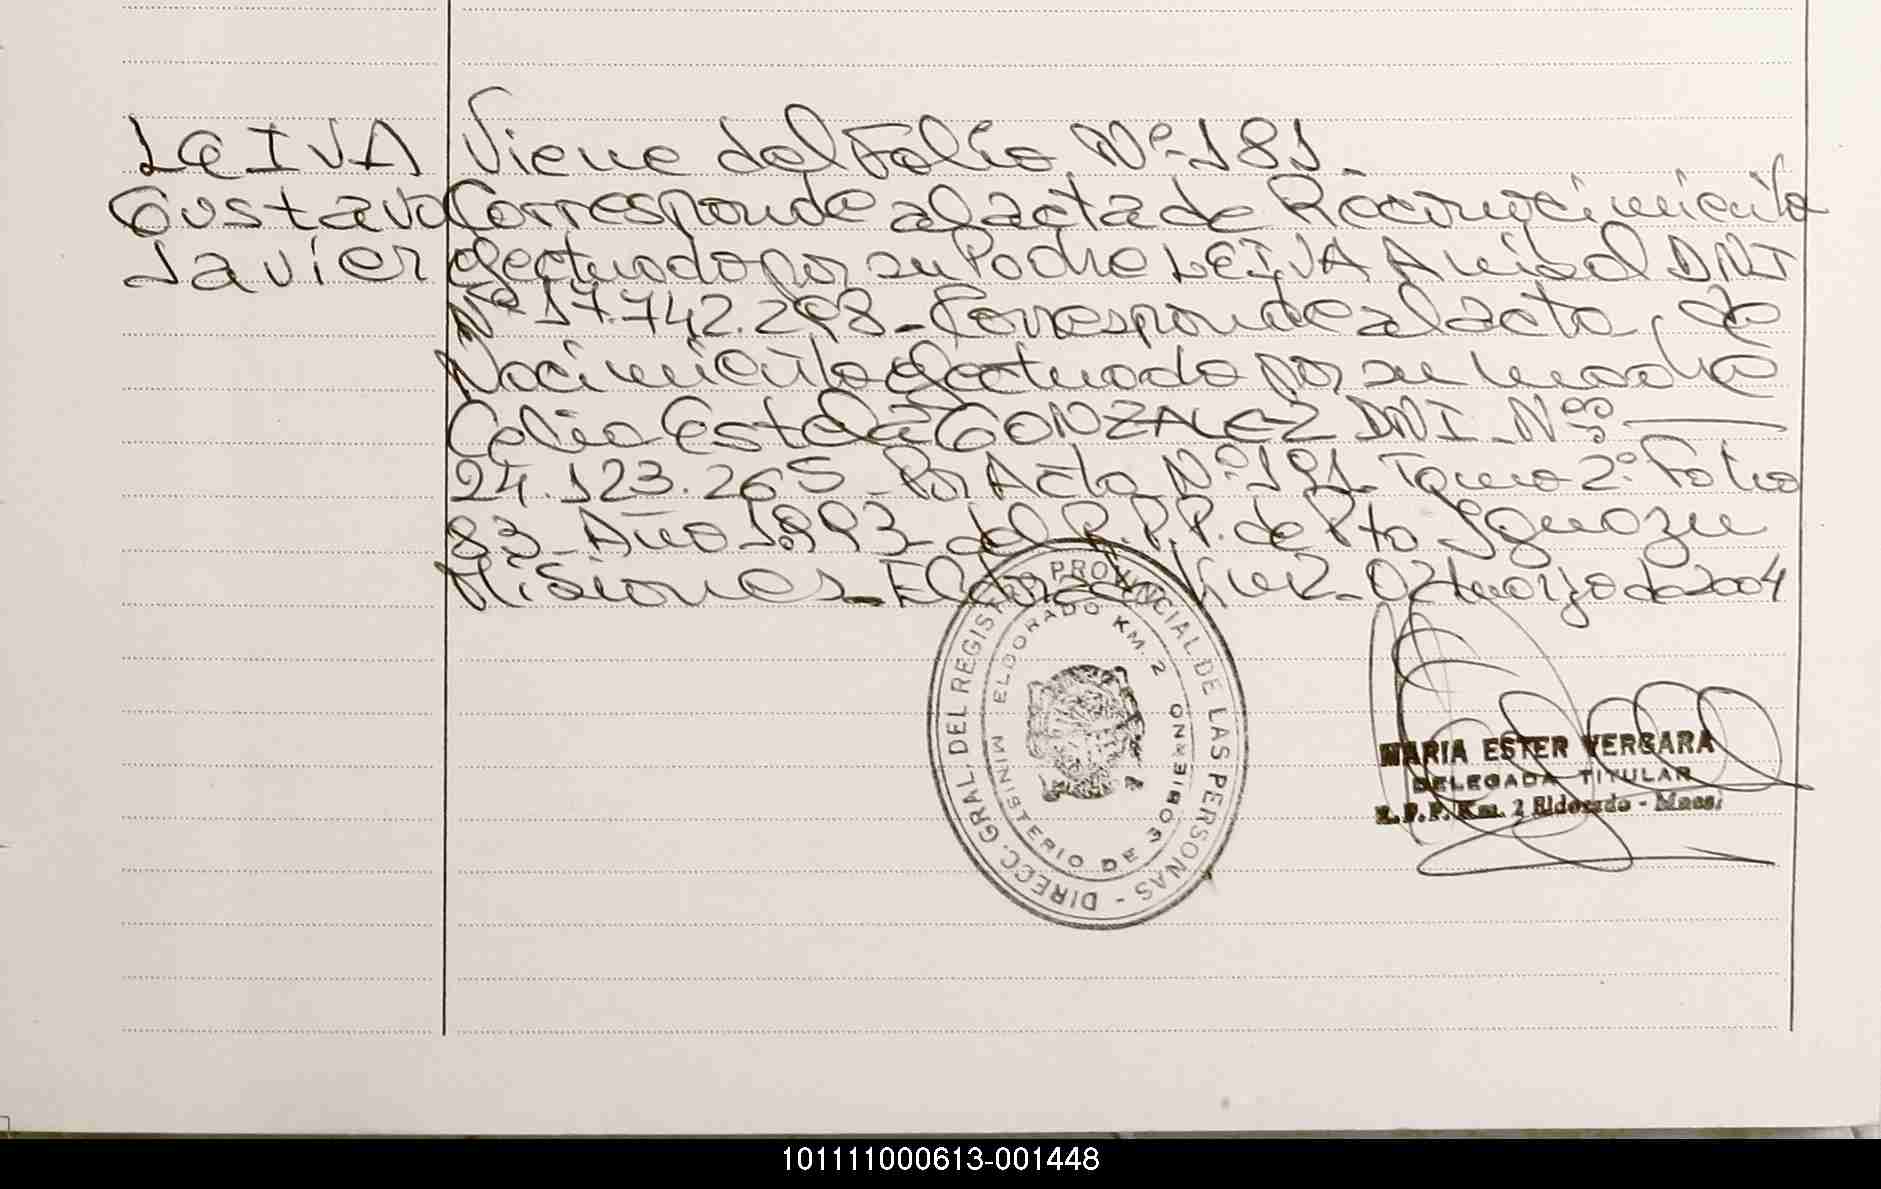 LEIVA Viene del Folio Nº 181
Gustavo Corresponde al acta de Reconocimiento
Javier efectuado por su Padre LEIVA Anibal DNI
Nº 17.742.298 - Corresponde al acta de
Nacimiento efectuado por su madre
Celia Estela GONZALEZ DNI Nº
24.123.265 - Por Acta Nº 191 Tomo 2º Folio
83 - Año 1993 - del R.P.P. de Pto Iguazu
Misiones - Eldorado Km 2 - 02 marzo de 2004
DIRECC. GRAL. DEL REGISTRO PROVINCIAL DE LAS PERSONAS -
MINISTERIO DE GOBIERNO
ELDORADO KM. 2
MARIA ESTER VERGARA
DELEGADA TITULAR
R.P.P. Km. 2 Eldorado - Mnes.
101111000613-001448